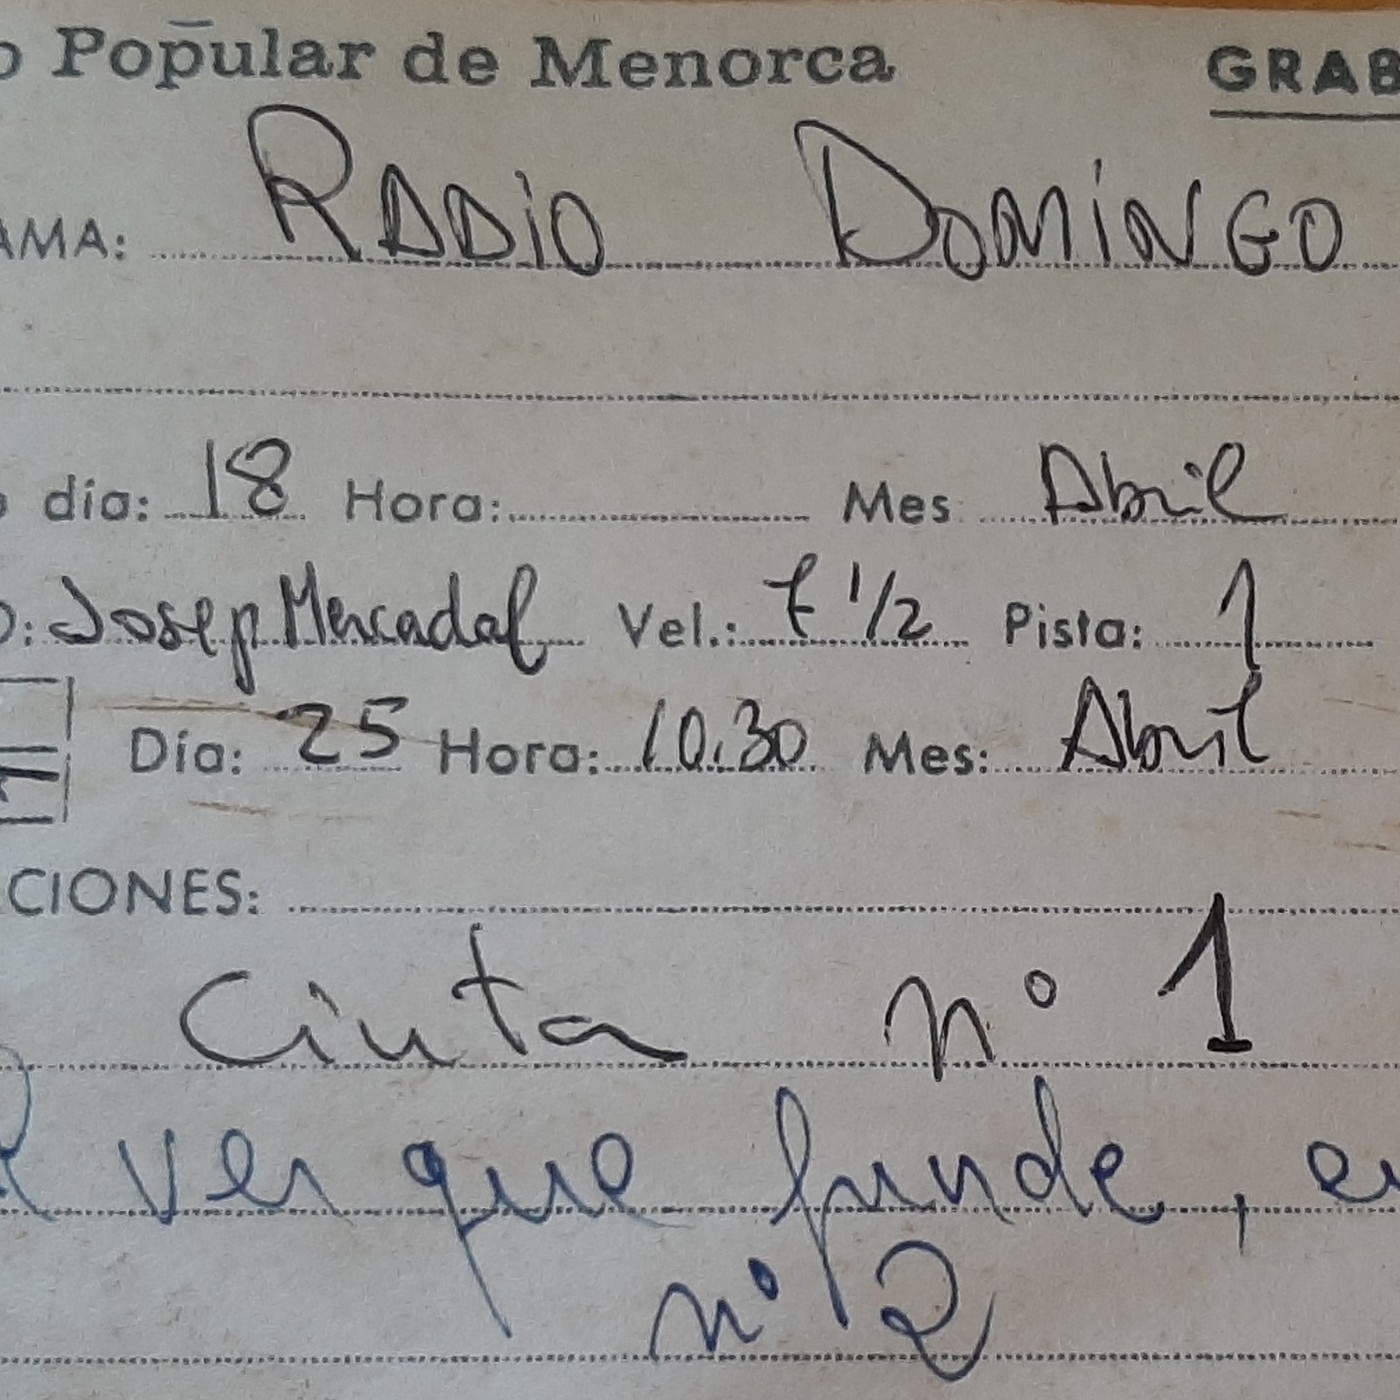 o Popular de Menorca GRAB
AMA: RADIO DOMINGO
o día: 18 Hora: Mes Abril
O: Josep Mercadal Vel.: 7 1/2 Pista: 1
Día: 25 Hora: 10.30 Mes: Abril
CIONES:
Cinta nº 1
A ver que funde, en
nº 2